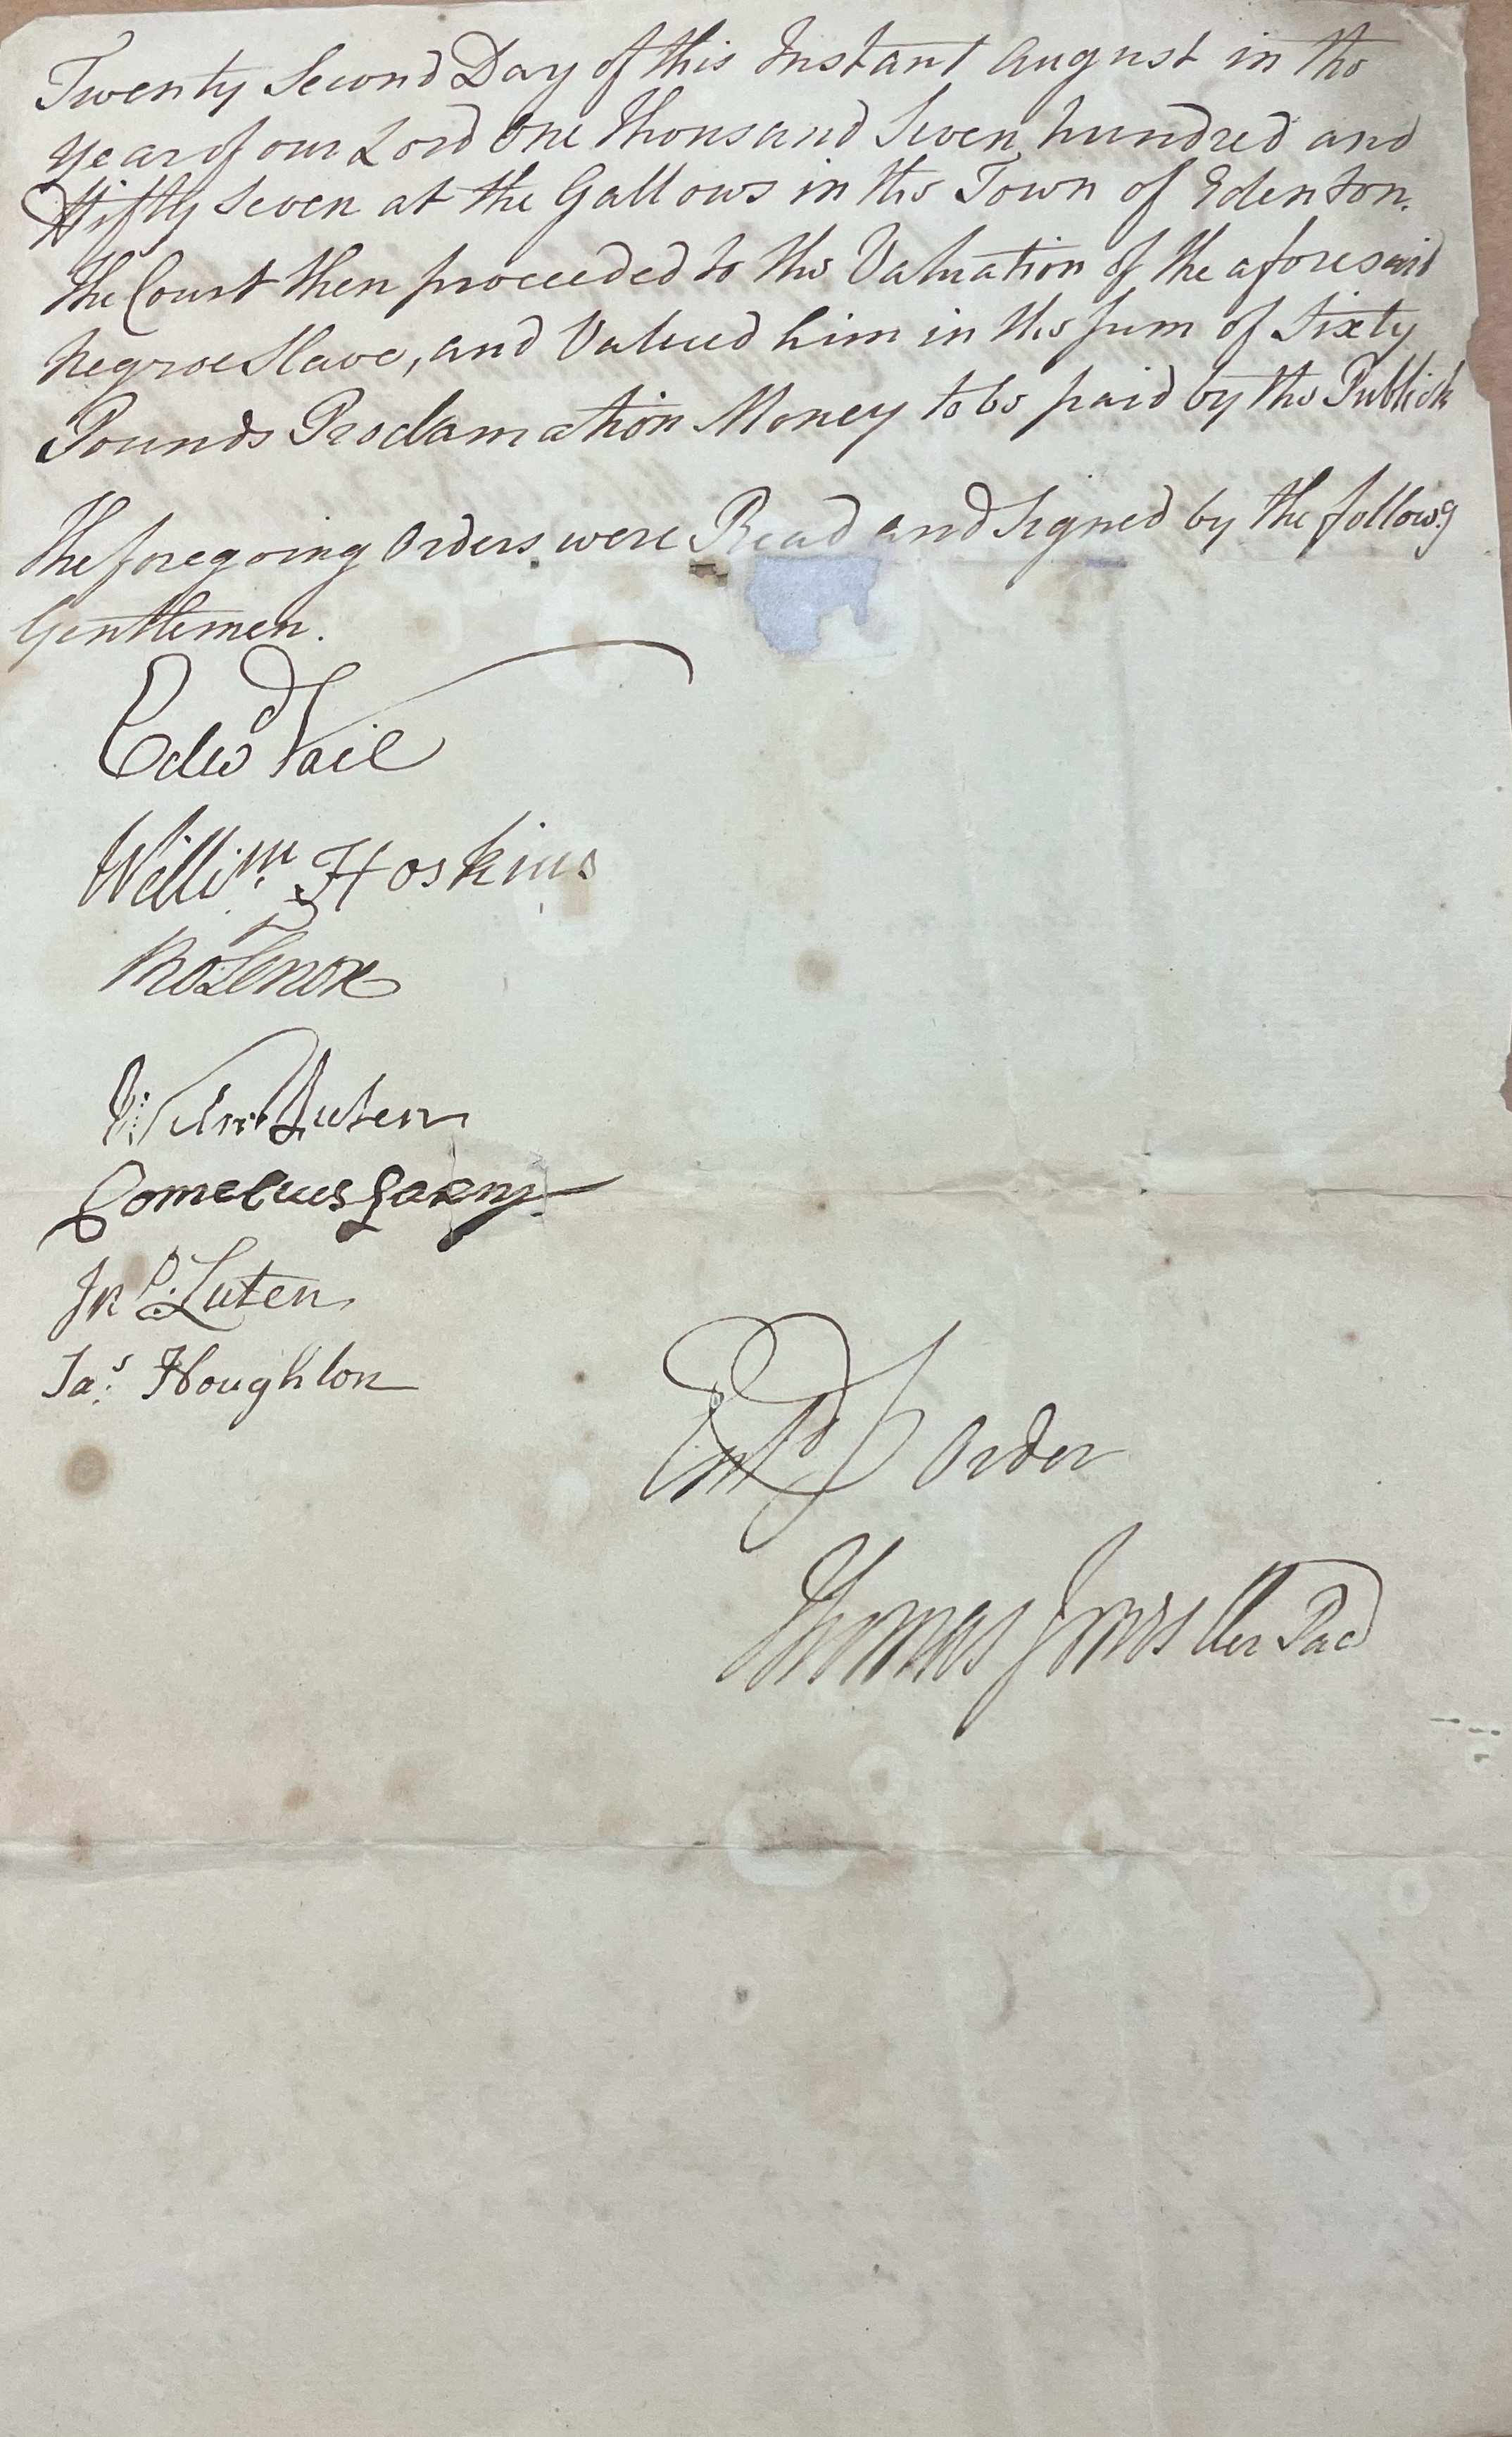 Twenty Second Day of this Instant August in the
Year of our Lord One Thousand Seven hundred and
fifty Seven at the Gallows in the Town of Edenton.
The Court then proceeded to the Valuation of the aforesaid
Negroe Slave, and Valued him in the Sum of Sixty
Pounds Proclamation Money to be paid by the Publick
The foregoing Orders were Read and Signed by the followg
Gentlemen.
Edwd Vail
Willim Hoskins
Ro Lenox
Luten
Cornelius Leary
Jno. Luten
Jas. Houghton
Order
Thomas Jones Cler Pac